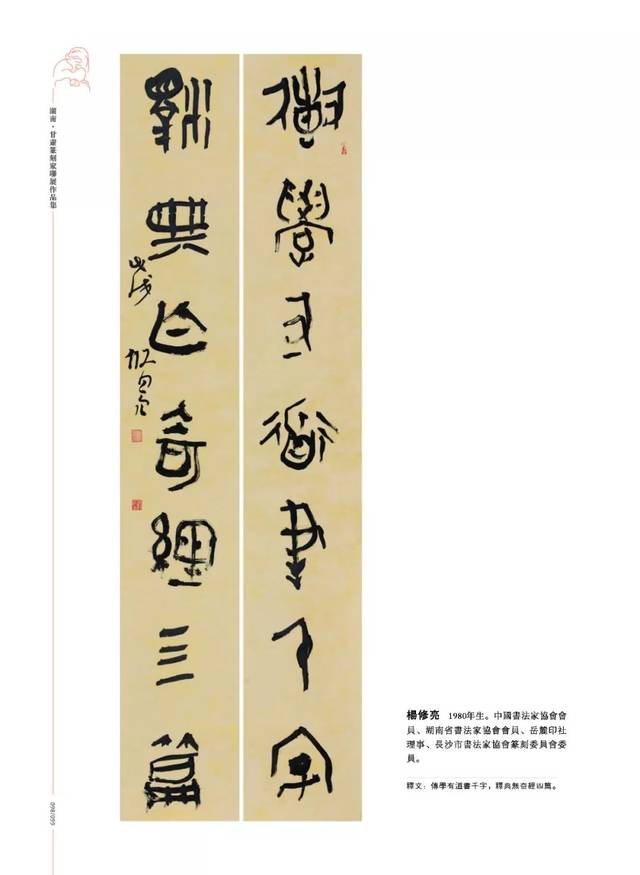 湖南·甘肅篆刻家聯展作品集
傳學有道書千字
釋典亡奇經三篇
楊修亮 1980年生。中國書法家協會會
員、湖南省書法家協會會員、岳麓印社
理事、長沙市書法家協會篆刻委員會委
員。
釋文：傳學有道書千字，釋典無奇經凶篇。
098/099